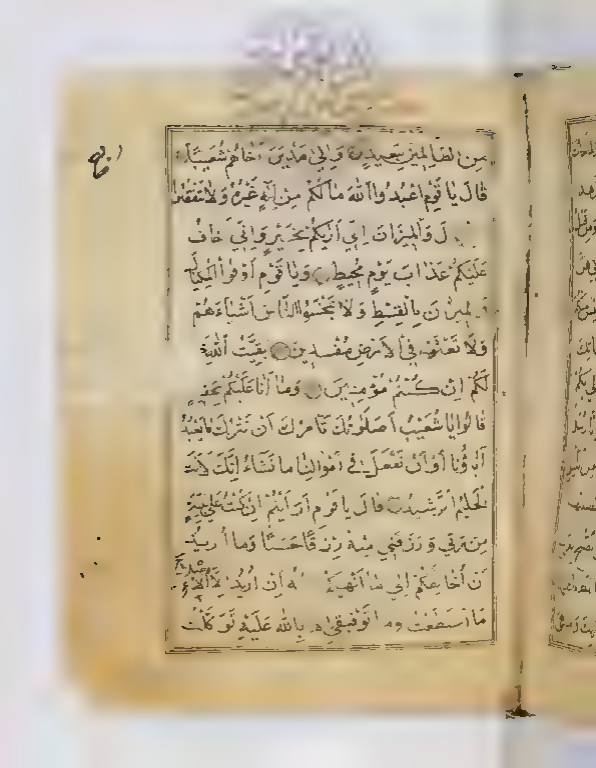 مِنَ الظَّالِمِينَ بِبَعِيدٍ وَإِلَىٰ مَدْيَنَ أَخَاهُمْ شُعَيْبًا
قَالَ يَا قَوْمِ اعْبُدُوا اللَّهَ مَا لَكُمْ مِنْ إِلَٰهٍ غَيْرُهُ وَلَا تَنْقُصُوا
ل وَالْمِيزَانَ إِنِّي أَرَاكُمْ بِخَيْرٍ وَإِنِّي أَخَافُ
عَلَيْكُمْ عَذَابَ يَوْمٍ مُحِيطٍ وَيَا قَوْمِ أَوْفُوا الْمِكْيَالَ
وَالْمِيزَانَ بِالْقِسْطِ وَلَا تَبْخَسُوا النَّاسَ أَشْيَاءَهُمْ
وَلَا تَعْثَوْا فِي الْأَرْضِ مُفْسِدِينَ بَقِيَّتُ اللَّهِ
لَكُمْ إِنْ كُنْتُمْ مُؤْمِنِينَ وَمَا أَنَا عَلَيْكُمْ بِحَفِيظٍ
قَالُوا يَا شُعَيْبُ أَصَلَوٰتُكَ تَأْمُرُكَ أَنْ نَتْرُكَ مَا يَعْبُدُ
آبَاؤُنَا أَوْ أَنْ نَفْعَلَ فِي أَمْوَالِنَا مَا نَشَاءُ إِنَّكَ لَأَنْتَ
الْحَلِيمُ الرَّشِيدُ قَالَ يَا قَوْمِ أَرَأَيْتُمْ إِنْ كُنْتُ عَلَىٰ بَيِّنَةٍ
مِنْ رَبِّي وَرَزَقَنِي مِنْهُ رِزْقًا حَسَنًا وَمَا أُرِيدُ
أَنْ أُخَالِفَكُمْ إِلَىٰ مَا أَنْهَاكُمْ عَنْهُ إِنْ أُرِيدُ إِلَّا الْإِصْلَاحَ
مَا اسْتَطَعْتُ وَمَا تَوْفِيقِي إِلَّا بِاللَّهِ عَلَيْهِ تَوَكَّلْتُ